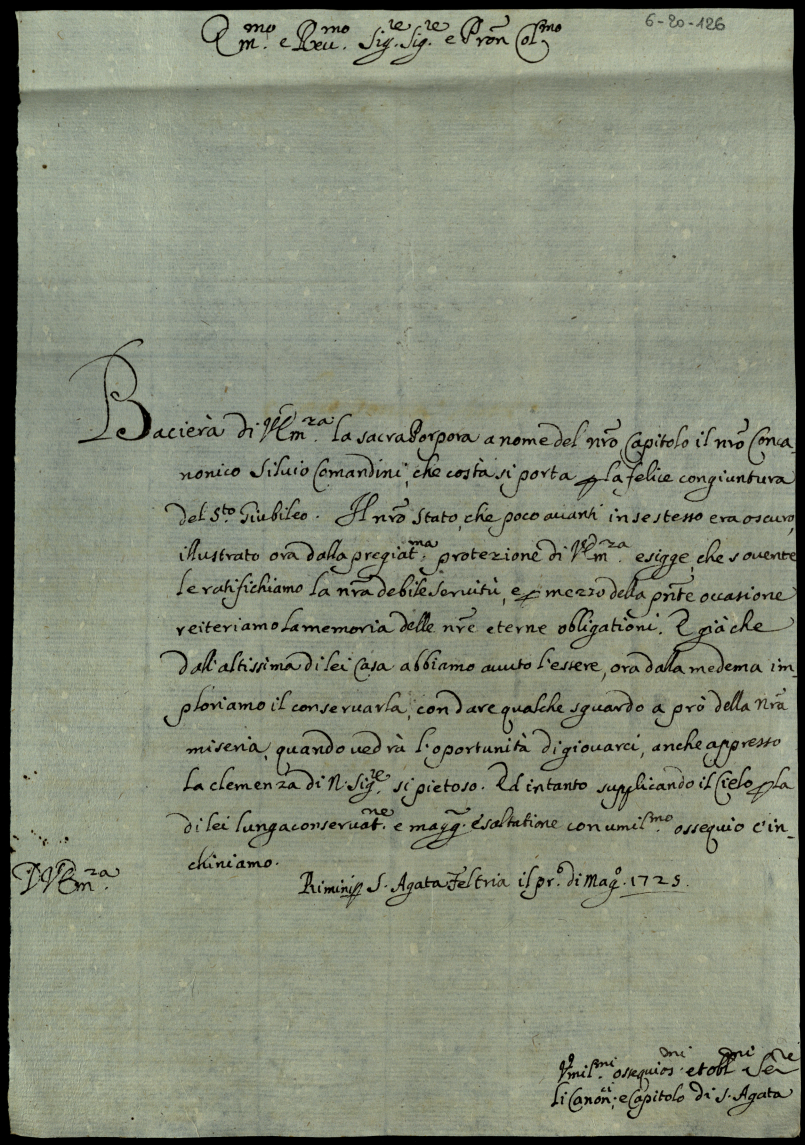 6-20-126
E.mo e Rev.mo Sig.re Sig.re e Pron Col.mo
Bacierà di V. Em.za la sacra Porpora a nome del nrõ Capitolo il nrõ Conca-
nonico Silvio Comandini, che costà si porta p la felice congiuntura
del S.to Giubileo. Il nrõ Stato, che poco avanti in se stesso era oscuro,
illustrato ora dalla pregiat.ma protezione di V. Em.za esigge, che sovente
le ratifichiamo la nrã debile servitù, e p mezzo della pñte occasione
reiteriamo la memoria delle nrẽ eterne obligationi. E già che
dall'altissima di lei Casa abbiamo avuto l'essere, ora dalla medema im-
ploriamo il conservarla, con dare qualche sguardo a prò della nrã
miseria, quando vedrà l'oportunità di giovarci, anche appresso
la clemenza di N. Sig.re si pietoso. Ed intanto supplicando il Cielo p la
di lei lunga conservat.ne e magg. esaltatione con umil.mo ossequio c'in-
chiniamo.
D. V. Em.za
Rimini p S. Agata Feltria il pr.o di Mag.o 1725.
Vmil.mi ossequios.mi et obl.mi Ser.
li Canon.ci e Capitolo di S. Agata